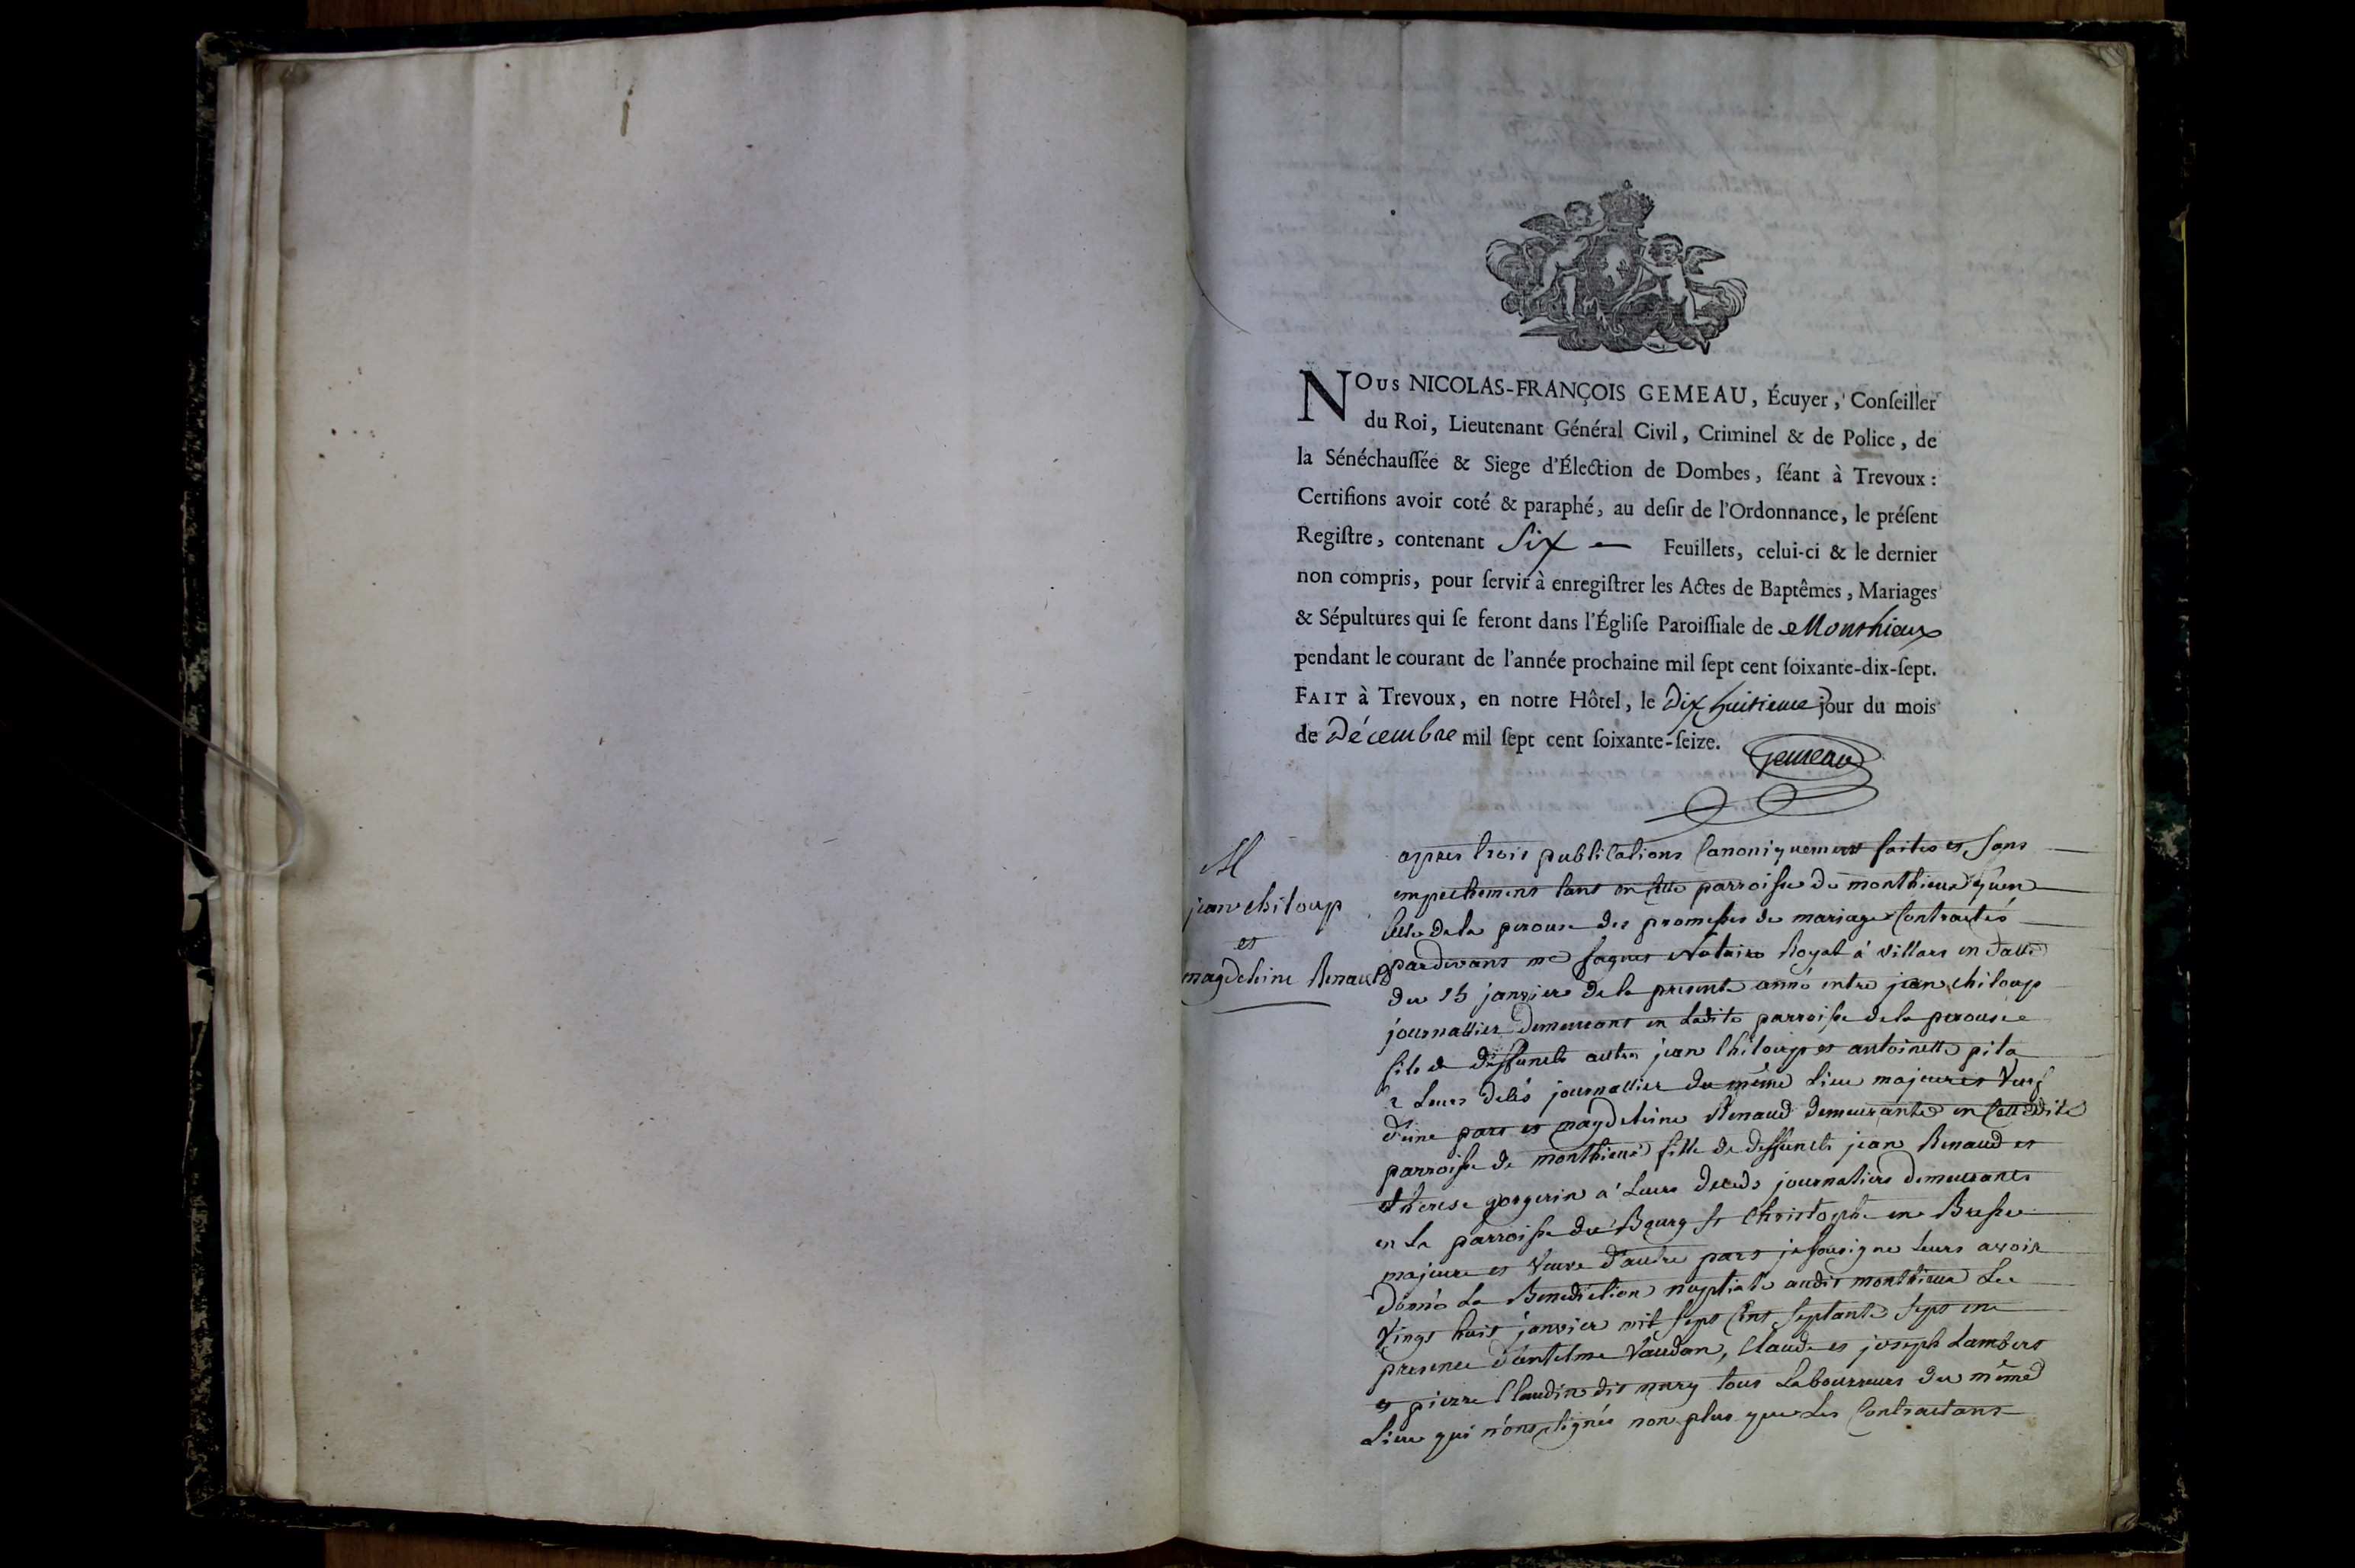 NOus NICOLAS-FRANÇOIS GEMEAU, Écuyer, Conſeiller
du Roi, Lieutenant Général Civil, Criminel & de Police, de
la Sénéchauſſée & Siege d'Élection de Dombes, ſéant à Trevoux :
Certifions avoir coté & paraphé, au deſir de l'Ordonnance, le préſent
Regiſtre, contenant Six — Feuillets, celui-ci & le dernier
non compris, pour ſervir à enregiſtrer les Actes de Baptêmes, Mariages
& Sépultures qui ſe feront dans l'Égliſe Paroiſſiale de Monthieux
pendant le courant de l'année prochaine mil ſept cent ſoixante-dix-ſept.
FAIT à Trevoux, en notre Hôtel, le Dix huitieme jour du mois
de Décembre mil ſept cent ſoixante-ſeize.
Gemeau
M
jean chiloup
et
magdeleine Renaud
apres trois publications Canoniquement faites et sans
empechement tant en cette parroisse de monthieux qu'en
celle de la perouse des promesses de mariage Contractés
pardevant me Notaire Royal à villars en datte
du 15 janvier de la presente anné entre jean chiloup
journallier demeurant en ladite parroisse de la perouse
fils de deffunct autre jean Chiloup et antoinette pita
a leurs journallier du même Lieu majeur et veuf
d'une part et magdeleine Renaud demeurante en cettedite
parroisse de monthieux fille de deffunct jean Renaud et
therese gorgerin a leurs deceds journaliers demeurants
en la parroisse du Bourg st Christophe en Bresse
majeure et veuve d'autre part je sousigne leurs avoir
donné La Benediction nuptiale audit monthieux Le
vingt huit janvier mil sept cent septante sept en
presence d'antelme vaudan, Claude et joseph Lambert
et pierre Claudin dit mury tous Laboureurs du même
Lieu qui n'ont signés non plus que Les Contractans